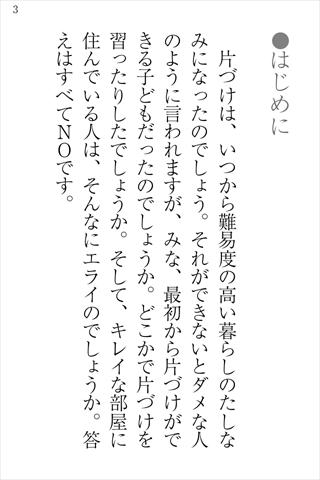 3
●はじめに
片づけは、いつから難易度の高い暮らしのたしな
みになったのでしょう。それができないとダメな人
のように言われますが、みな、最初から片づけがで
きる子どもだったのでしょうか。どこかで片づけを
習ったりしたでしょうか。そして、キレイな部屋に
住んでいる人は、そんなにエライのでしょうか。答
えはすべてNOです。